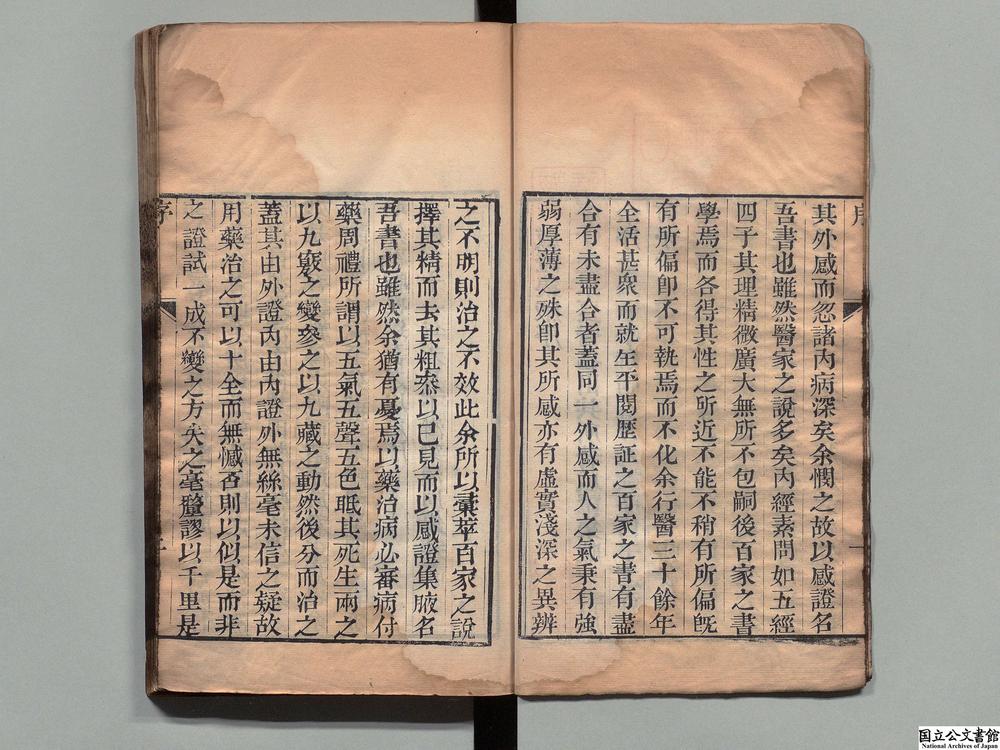 其外感而忽諸內病深矣余憫之故以感證名
吾書也雖然醫家之說多矣內經素問如五經
四子其理精微廣大無所不包嗣後百家之書
學焉而各得其性之所近不能不稍有所偏旣
有所偏卽不可執焉而不化余行醫三十餘年
全活甚衆而就生平閱歷証之百家之書有盡
合有未盡合者蓋同一外感而人之氣秉有強
弱厚薄之殊卽其所感亦有虛實淺深之異辨
之不明則治之不效此余所以彙萃百家之說
擇其精而去其粗叅以已見而以感證集腋名
吾書也雖然余猶有憂焉以藥治病必審病付
藥周禮所謂以五氣五聲五色眡其死生兩之
以九竅之變參之以九藏之動然後分而治之
蓋其由外證內由內證外無絲毫未信之疑故
用藥治之可以十全而無憾否則以似是而非
之證試一成不變之方失之毫釐謬以千里是
序
国立公文書館
National Archives of Japan